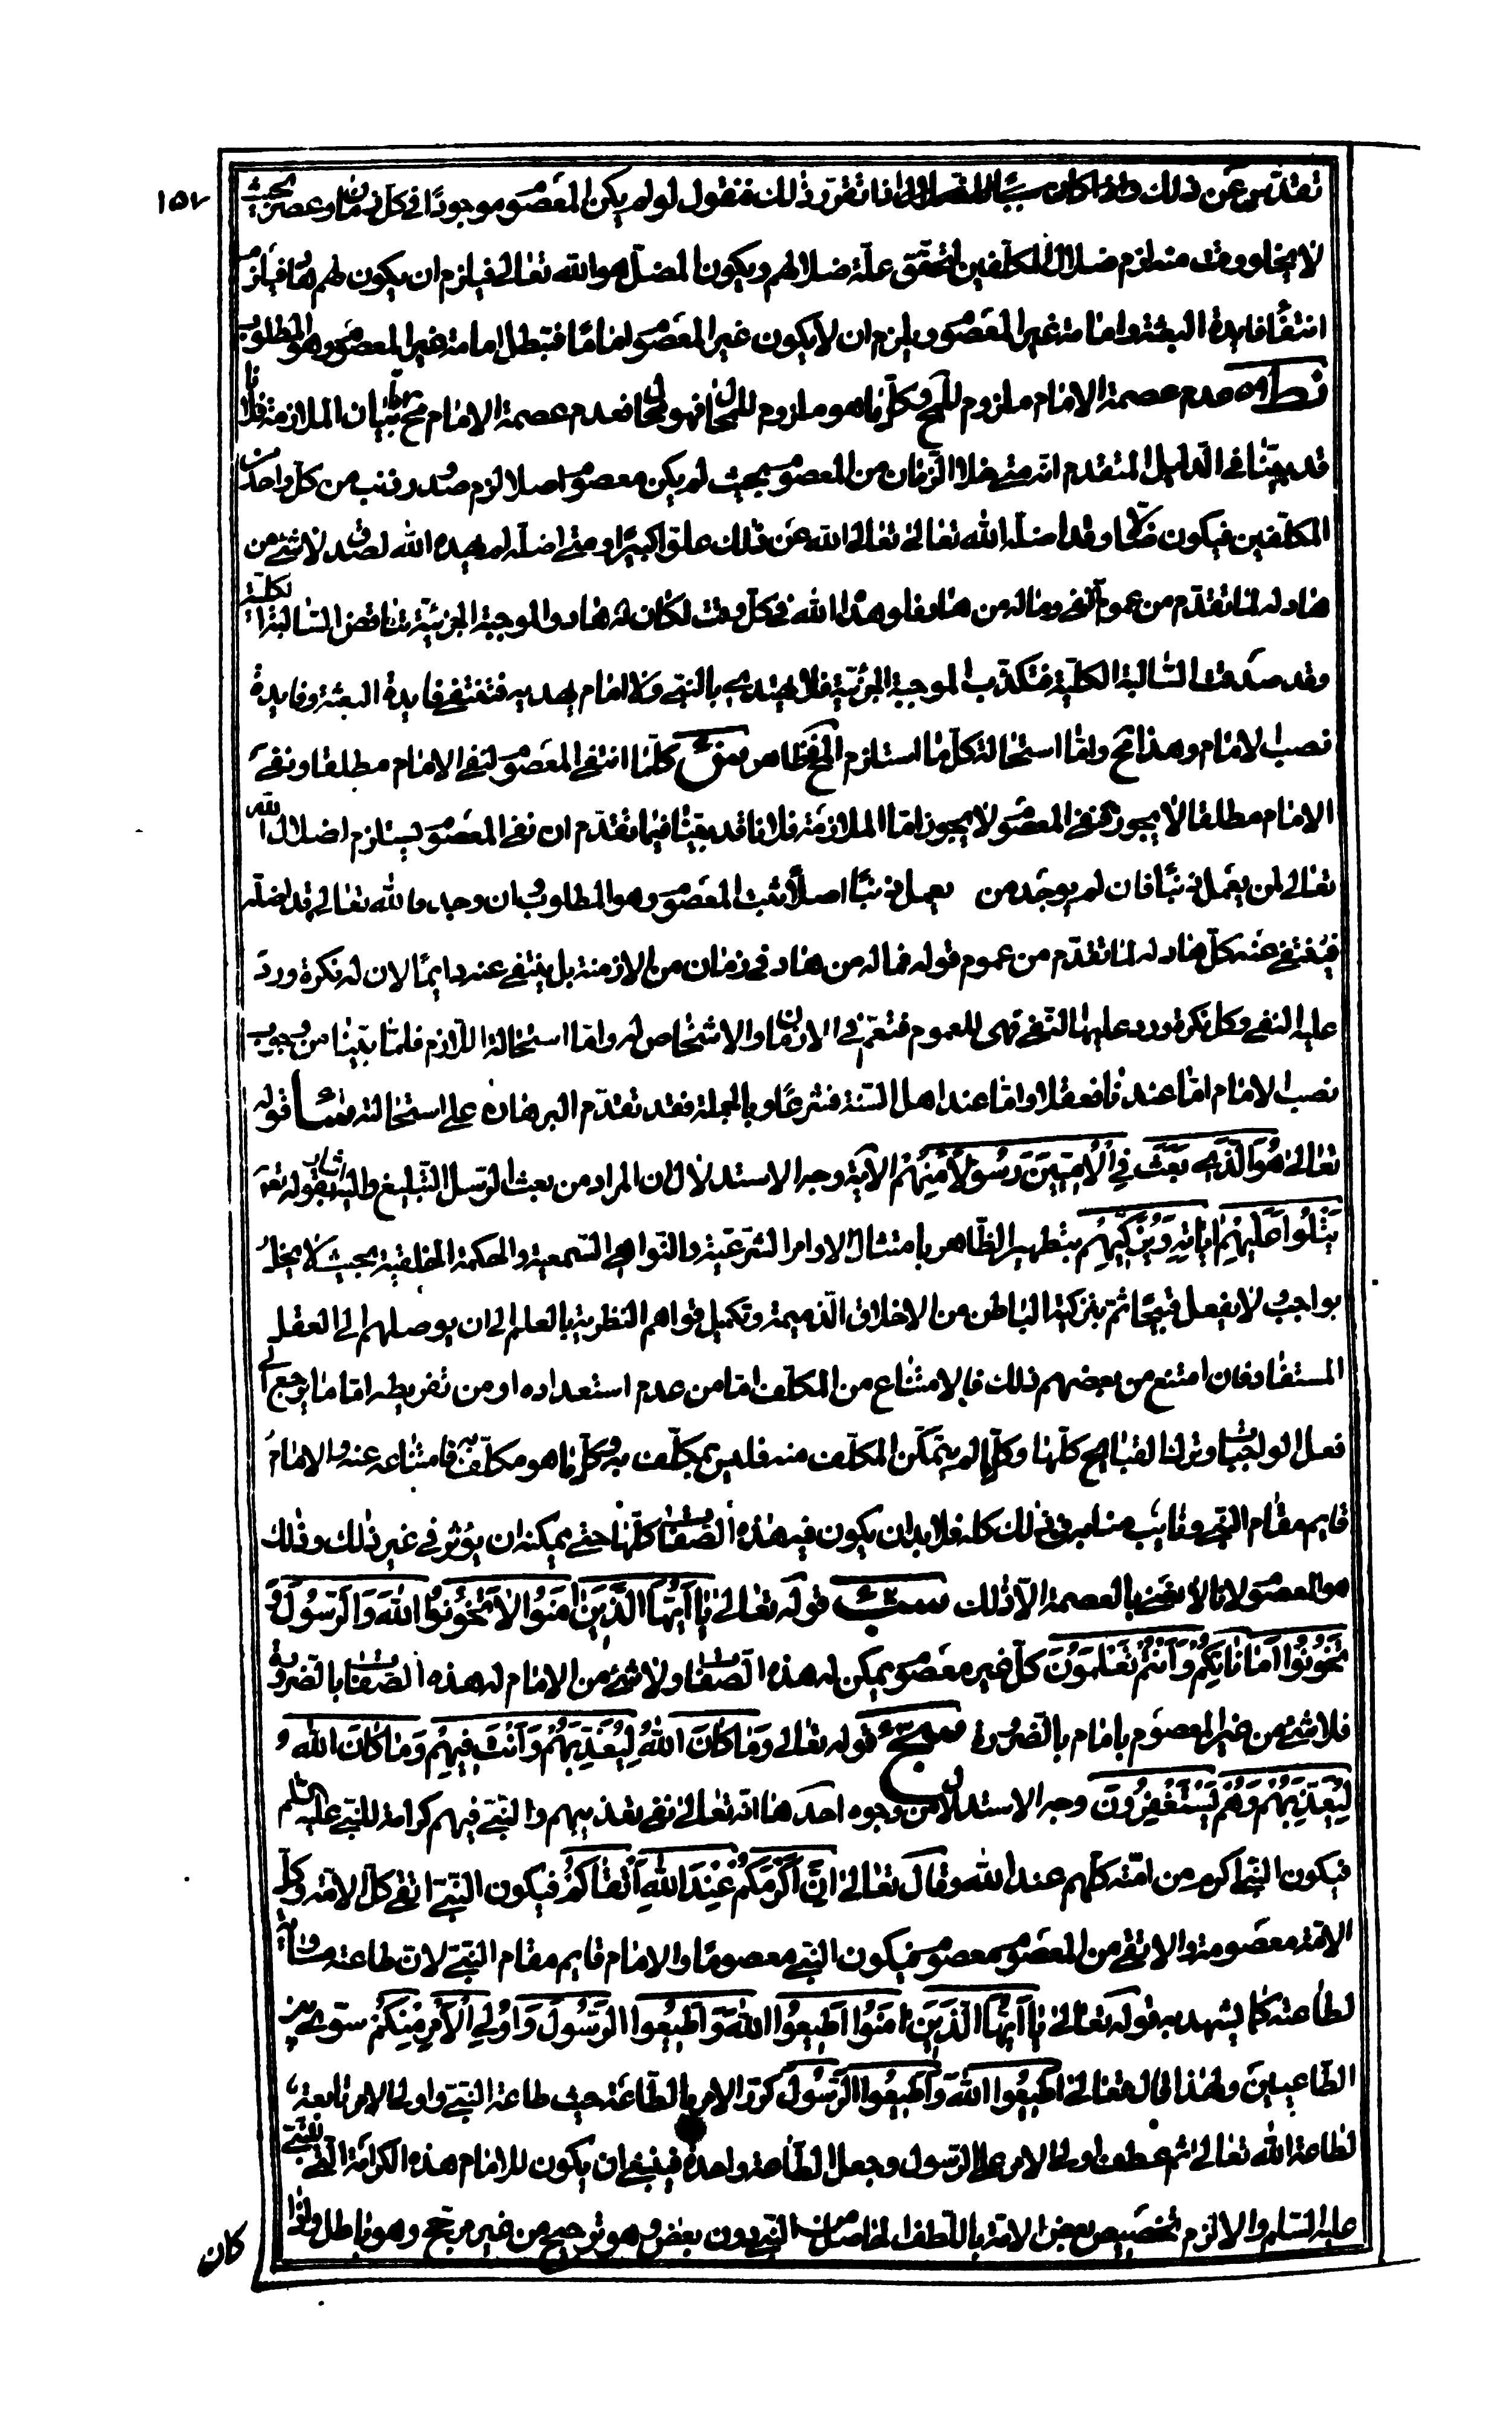 ١٥٧
تقدّس عن ذلك اذا تقرر ذلك فنقول لو لم يكن المعصوم موجودًا في كل زمان وعصر بحيث
لا يخلو وقت منه لزم ضلال المكلّفين لتحقق علّة ضلالهم ويكون المضلّ هو الله تعالى فيلزم ان يكون لهم هاد فيلزم
انتفا فايدة البعثة وامامة غير المعصوم ويلزم ان لا يكون غير المعصوم امامًا فتبطل امامة غير المعصوم وهو المطلوب
نط عدم عصمة الامام ملزوم للمح وكلّ ما هو ملزوم للمحال فهو محال فعدم عصمة الامام مح بيان الملازمة فلانا
قد بيّنا في الدليل المتقدم انه متى خلا الزمان من المعصوم بحيث لم يكن معصوم اصلا لزم صدور ذنب من كل واحد من
المكلّفين فيكون ظالما وقد اضلّه الله تعالى تعالى الله عن ذلك علوّا كبيرًا ومتى اضلّه لم يهده الله لصدق لا شئ من
هاد له لما تقدّم من عموم النفي وماله من هاد فلو هداه الله في كل وقت لكان له هاد والموجبة الجزئيّة تناقض السّالبة الكلّيّة
وقد صدقت السّالبة الكلّيّة فتكذب الموجبة الجزئيّة فلا يهتدي بالنبي ولا امام يهديه فتنتفي فايدة البعثة وفايدة
نصب الامام وهذا مح وامّا استحالة كلّ ما استلزم المح فظاهر س كلّما انتفى المعصوم انتفى الامام مطلقا ونفي
الامام مطلقا لا يجوز فنفي المعصوم لا يجوز امّا الملازمة فلانا قد بيّنا فيما تقدّم ان نفي المعصوم يستلزم اضلال الله
تعالى لمن يعمل ذنبًا فان لم يوجد من يعمل ذنبًا اصلاً ثبت المعصوم وهو المطلوب وان وجد فالله تعالى قد اضلّه
فينتفي عنه كلّ هاد له لما تقدّم من عموم قوله فماله من هاد في زمان من الازمنة بل ينتفي عنه دايمًا لان له نكرة ورد
عليه النفي وكل نكرة ورد عليها النّفي فهي للعموم فتعمّ في الازمان والاشخاص له وامّا استحالة اللّازم فلما بيّنا من وجوب
نصب الامام امّا عندنا فعقلا وامّا عند اهل السّنة فشرعًا وبالجملة فقد تقدّم البرهان على استحالته سا قوله
تعالى هُوَ الَّذِي بَعَثَ فِي الْأُمِّيِّينَ رَسُولًا مِنْهُمْ الآية وجه الاستدلال ان المراد من بعث الرّسل التّبليغ واليه اشار بقوله تعم
يَتْلُوا عَلَيْهِمْ آيَاتِهِ وَيُزَكِّيهِمْ بتطهير الظّاهر بامتثال الاوامر الشرعيّة والنواهي السّمعية والحكمة الخلقية بحيث لا يخلّ
بواجب ولا يفعل قبيحًا ثمّ بتزكية الباطن من الاخلاق الذّميمة وتكميل قواهم النظرية بالعلم الى ان يوصلهم الى العقل
المستفاد فان امتنع من بعضهم ذلك فالامتناع من المكلّف امّا من عدم استعداده او من تفريطه امّا ما يرجع الى
فعل الواجبات وترك القبايح كلّها وكلّ ما لم يتمكّن المكلّف منه فليس بمكلّف به وكلّ ما هو مكلّف به فامتناعه عنه والامام
قايم مقام النبي ونايب منابه في ذلك كله فلا بد ان يكون فيه هذه الصّفات كلّها حتى يمكنه ان يؤثر في غير ذلك وذلك
هو المعصوم لانا لا نعني بالعصمة الّا ذلك سب قوله تعالى يَا أَيُّهَا الَّذِينَ آمَنُوا لَا تَخُونُوا اللهَ وَالرَّسُولَ وَ
تَخُونُوا أَمَانَاتِكُمْ وَأَنْتُمْ تَعْلَمُونَ كلّ غير معصوم يمكن له هذه الصّفات ولا شئ من الامام له هذه الصّفات بالضرورة
فلا شئ من غير المعصوم بامام بالضّرورة سج قوله تعالى وَمَا كَانَ اللهُ لِيُعَذِّبَهُمْ وَأَنْتَ فِيهِمْ وَمَا كَانَ اللهُ
لِيُعَذِّبَهُمْ وَهُمْ يَسْتَغْفِرُونَ وجه الاستدلال من وجوه احدها انه تعالى نفى تعذيبهم والنبي فيهم كرامة للنبي عليه السّلم
فيكون النبي اكرم من امّته كلّهم عند الله وقال تعالى إِنَّ أَكْرَمَكُمْ عِنْدَ اللهِ أَتْقَاكُمْ فيكون النبي اتقى كل الامّة وكل
الامّة معصومة والاتقى من المعصوم معصوم فيكون النبي معصومًا والامام قايم مقام النبي لان طاعته مساوية
لطاعته كما يشهد به قوله تعالى يَا أَيُّهَا الَّذِينَ آمَنُوا أَطِيعُوا اللهَ وَأَطِيعُوا الرَّسُولَ وَأُولِي الْأَمْرِ مِنْكُمْ سوّى بين
الطّاعتين ولهذا قال تعالى أَطِيعُوا اللهَ وَأَطِيعُوا الرَّسُولَ كرّر الامر بالطّاعة حيث طاعة النبي واولى الامر تابعة
لطاعة الله تعالى ثم عطف اولى الامر على الرّسول وجعل الطّاعة واحدة فينبغي ان يكون للامام هذه الكرامة التي للنبي
عليه السّلم والا لزم تخصيص بعض الامّة باللّطف الحاصل من النبي دون بعض وهو ترجيح من غير مرجّح وهو باطل واذا
كان